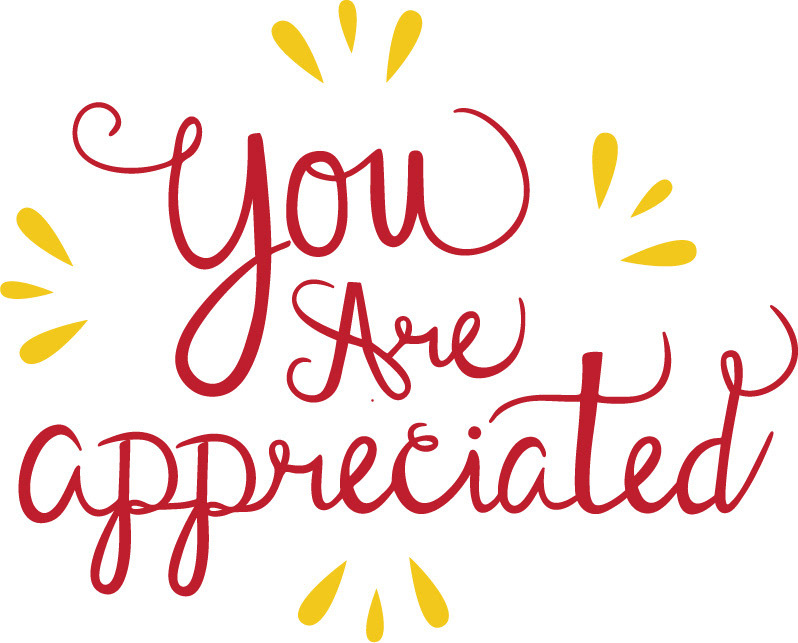 You
Are
appreciated